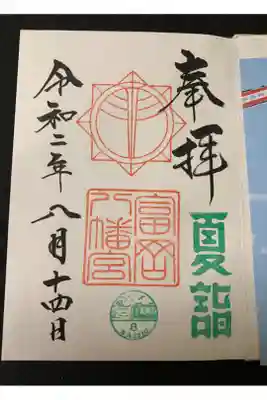 奉拝
夏詣
富岡
八幡宮
8
令和二年八月十四日